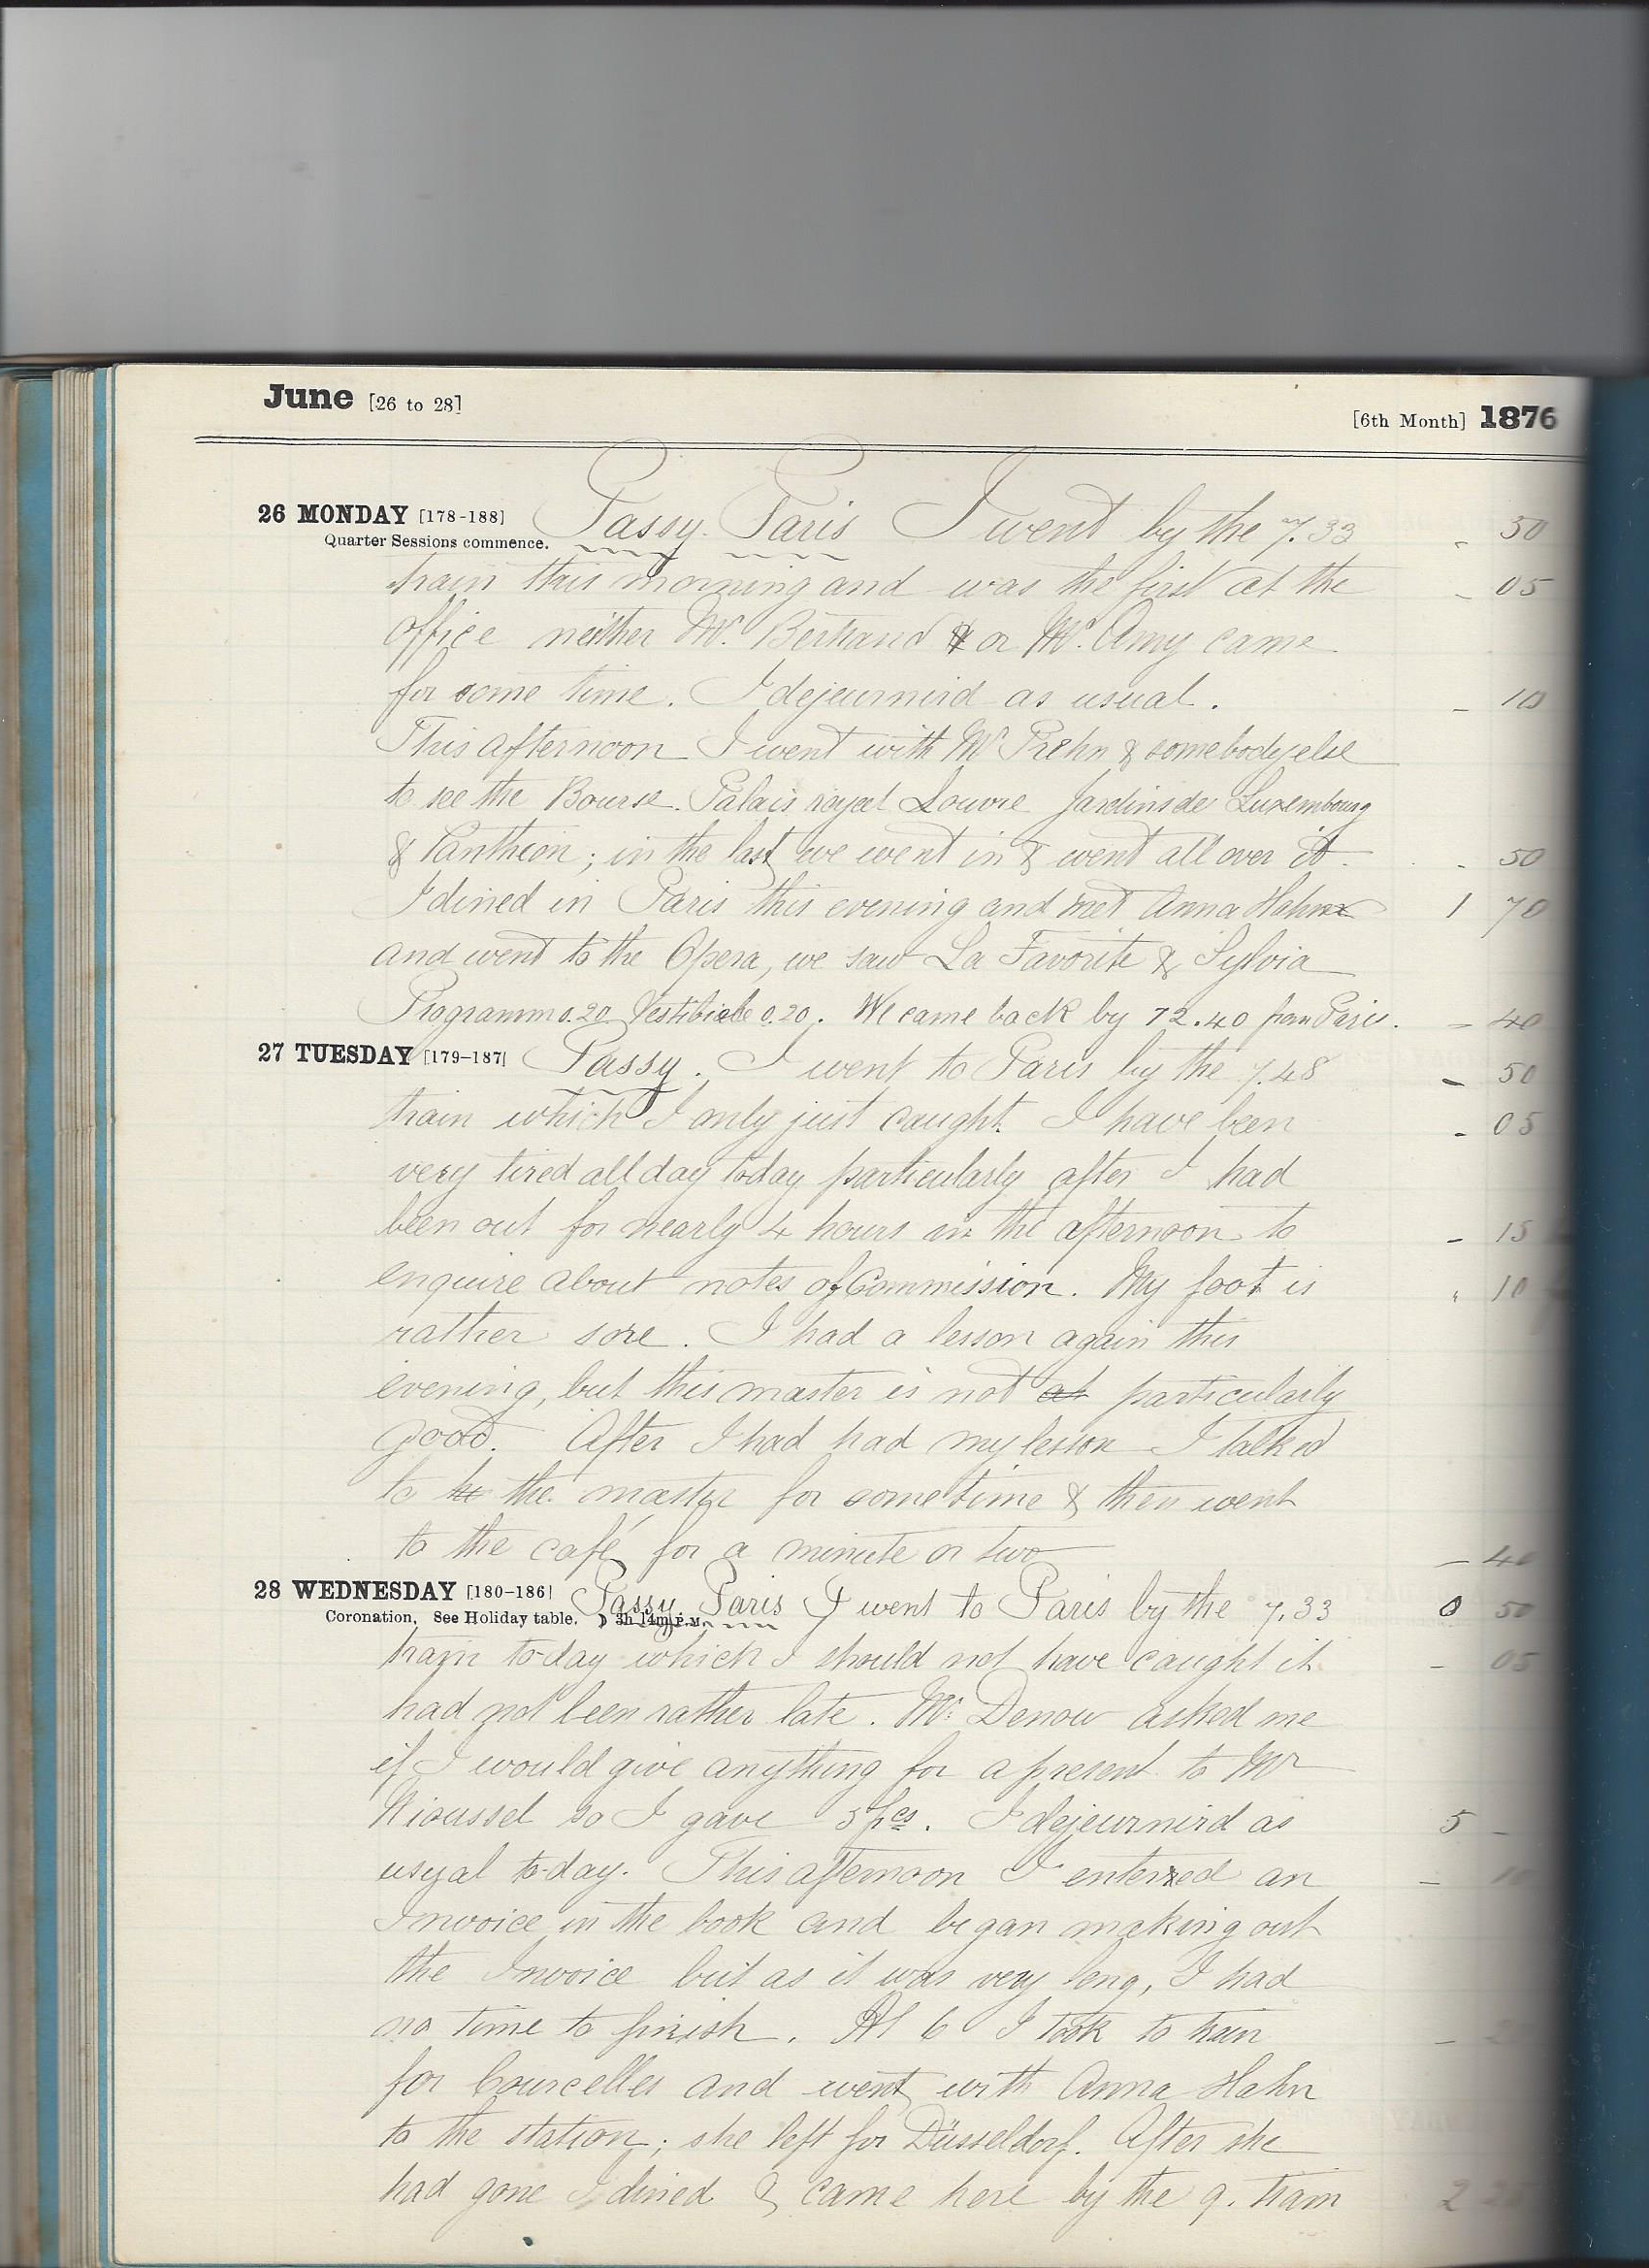 June [26 to 28] [6th Month] 1876
26 MONDAY [178-188] Passy. Paris I went by the 7.33 - 50
Quarter Sessions commence.
train this morning and was the first at the - 05
office neither Mr. Bertrand or Mr. Amy came
for some time. I dejeurnird as usual. - 10
This afternoon I went with Mr Prehn & somebody else
to see the Bourse. Palais royal Louvre Jardins de Luxembourg
& Pantheon; in the last we went in & went all over it. - 50
I dined in Paris this evening and met Anna Hahn 1 70
and went to the Opera, we saw La Favorite & Sylvia
Programm 0.20 Vestibiale 0.20. We came back by 12.40 from Paris. - 40
27 TUESDAY [179-187] Passy. I went to Paris by the 7.48 - 50
train which I only just caught. I have been - 05
very tired all day today particularly after I had
been out for nearly 4 hours in the afternoon to - 15
enquire about notes of Commission. My foot is " 10
rather sore. I had a lesson again this
evening, but this master is not at particularly
good. After I had had my lesson I talked
to the master for some time & then went
to the café for a minute or two - 40
28 WEDNESDAY [180-186] Passy Paris I went to Paris by the 7.33 0 50
Coronation, See Holiday table. ☽ 3h 14m P.M.
train to-day which I should not have caught it - 05
had not been rather late. Mr. Denow asked me
if I would give anything for a present to Mr
Nioussel so I gave 5 fcs. I dejeurnird as 5 -
usual to-day. This afternoon I entered an - 10
Invoice in the book and began making out
the Invoice but as it was very long, I had
no time to finish. At 6 I took to train - 2
for Courcelles and went with Anna Hahn
to the station; she left for Düsseldorf. After she
had gone I dined & came here by the 9. train 2